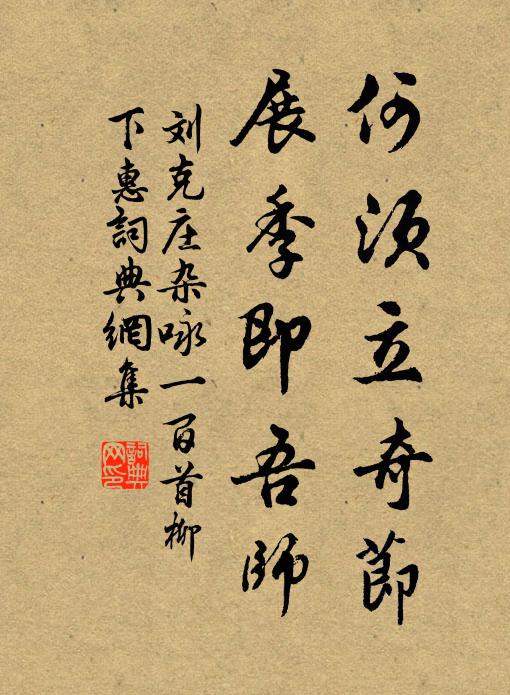 何须立奇節
展季即吾師
刘克庄杂咏一百首柳
下惠詞典網集
詞典
网印